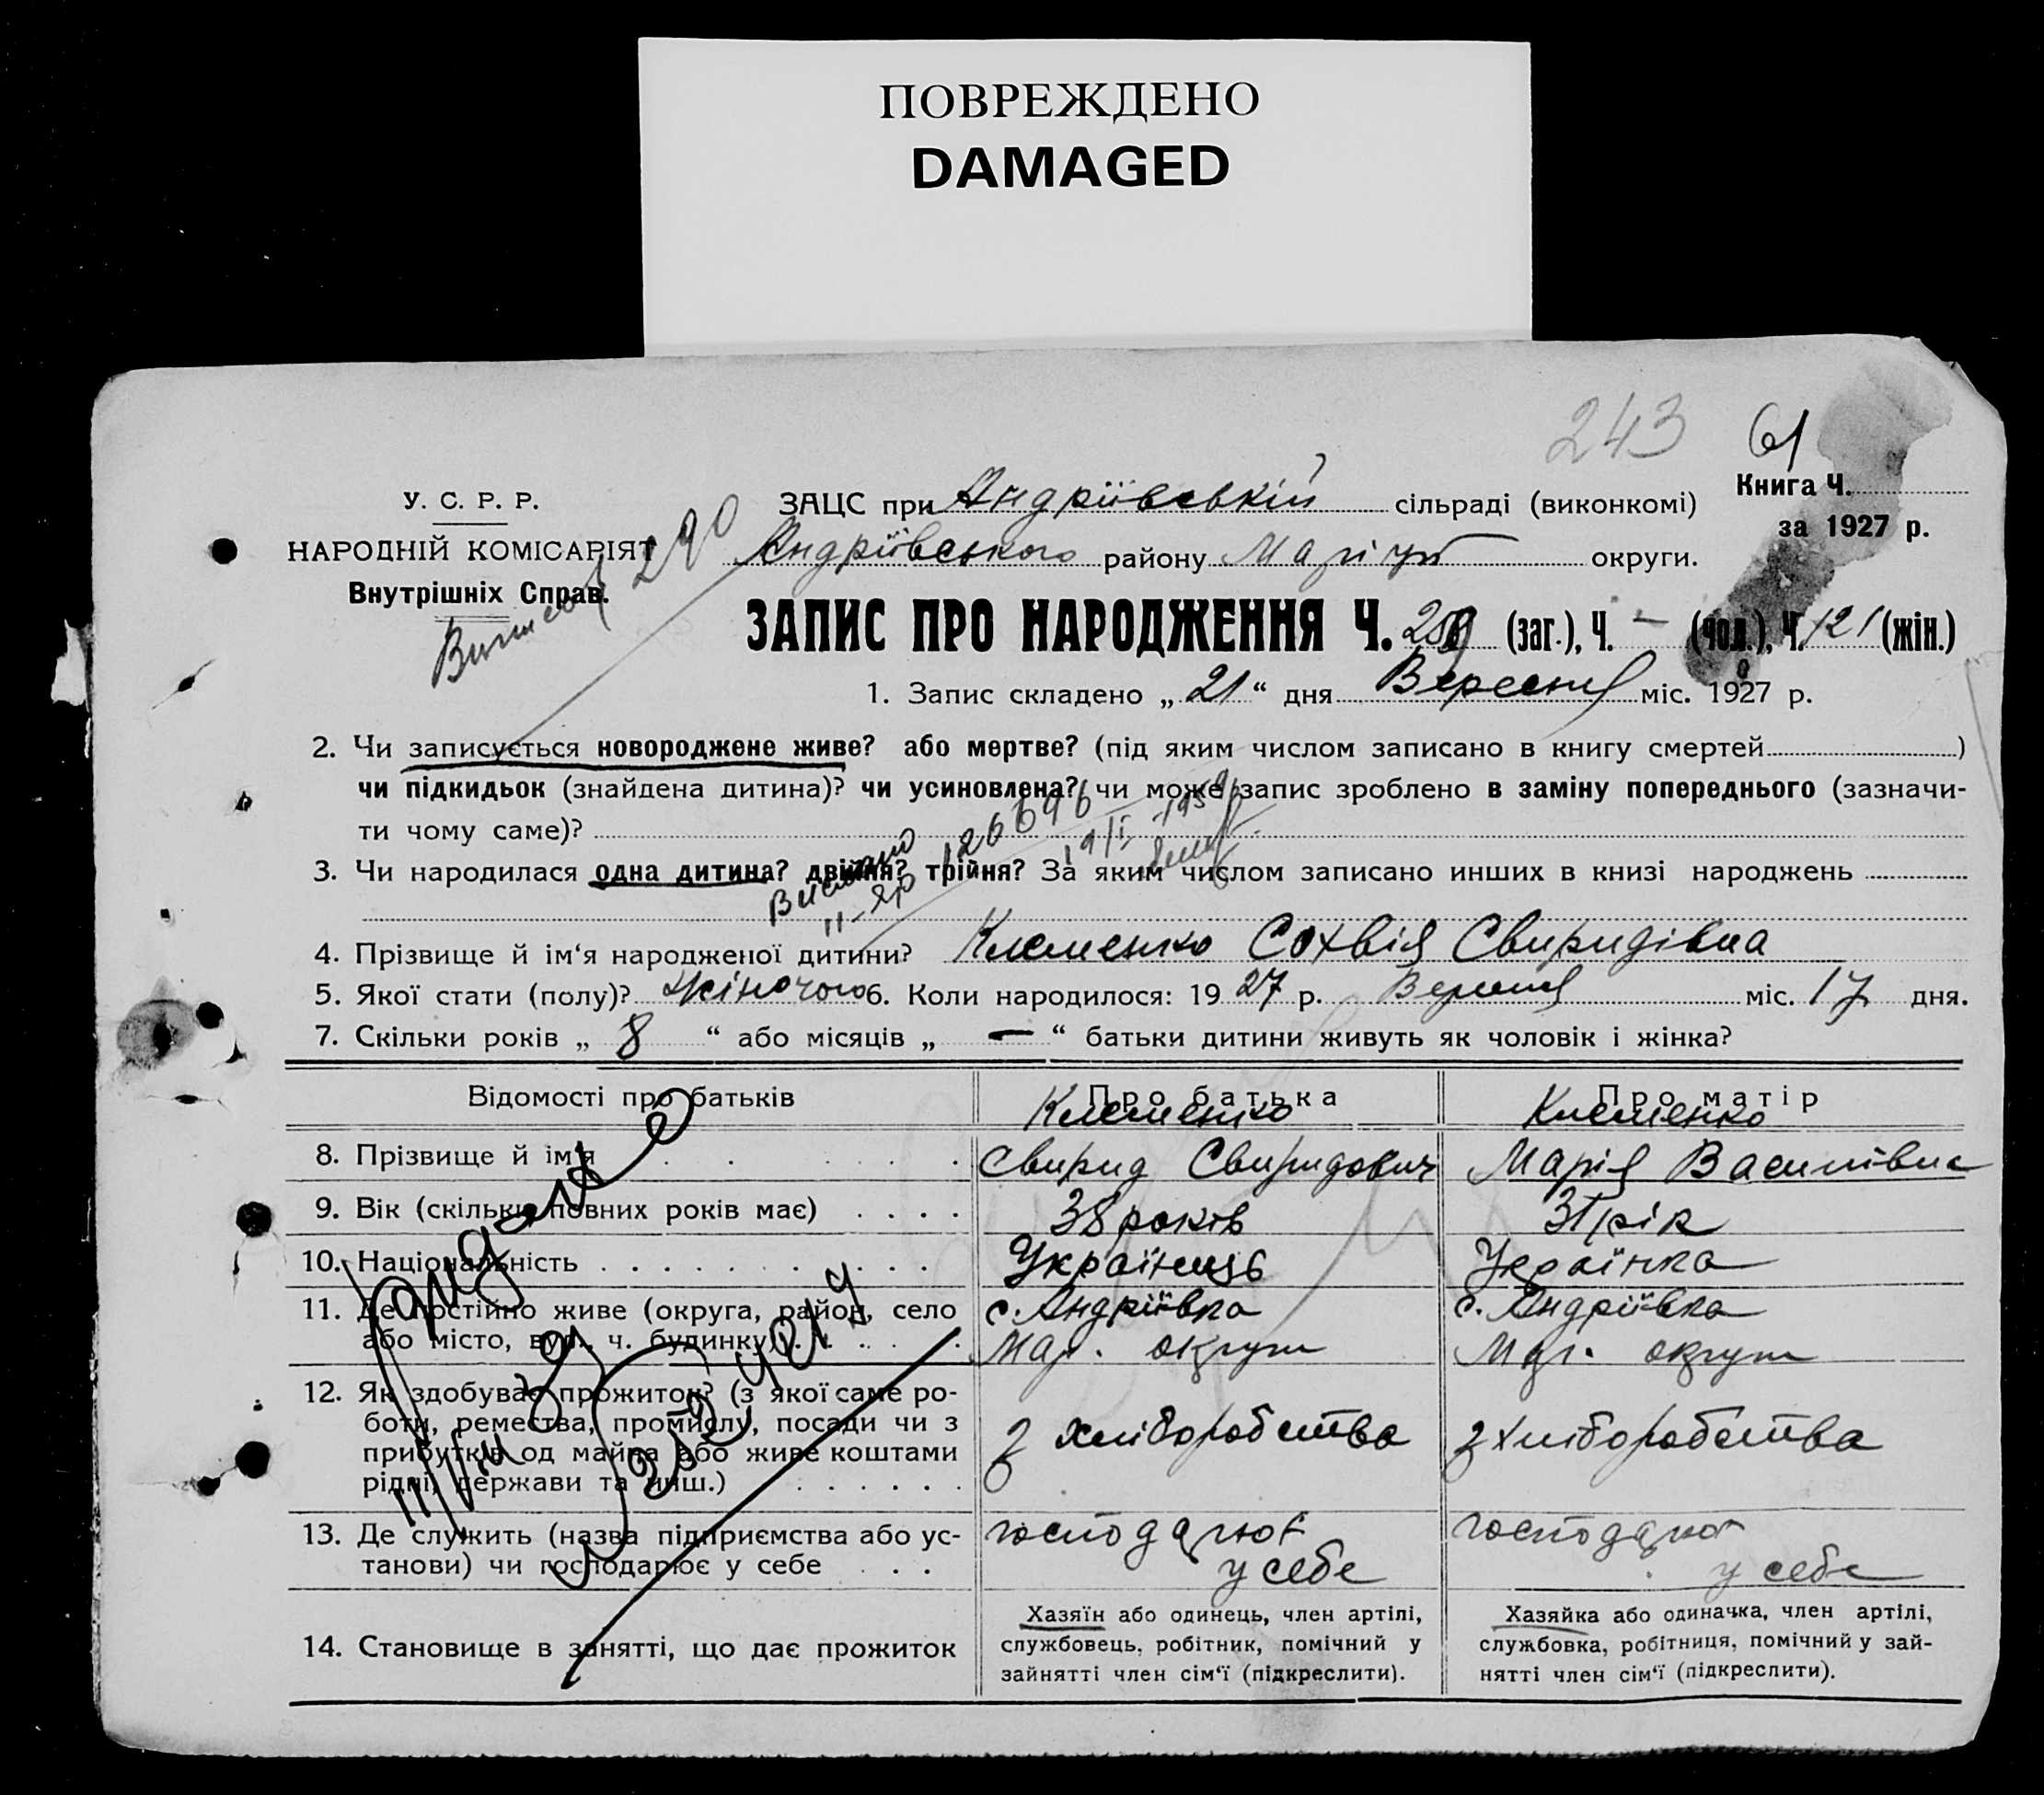 ПОВРЕЖДЕНО
DAMAGED
243 61
У. С. Р. Р.
НАРОДНІЙ КОМІСАРІЯТ
Внутрішніх Справ.
290
ЗАЦС при Андріївській сільраді (виконкомі)
Книга Ч.
за 1927 р.
Андріївського району Маріуп округи.
ЗАПИС ПРО НАРОДЖЕННЯ Ч. (заг.), Ч. – (чол.), Ч. 121 (жін.)
1. Запис складено „ 21 “ дня Вересня міс. 1927 р.
2. Чи записується новороджене живе? або мертве? (під яким числом записано в книгу смертей )
чи підкидьок (знайдена дитина)? чи усиновлена? чи може запис зроблено в заміну попереднього (зазначи-
ти чому саме)?
126696
19/I
3. Чи народилася одна дитина? двійня? трійня? За яким числом записано инших в книзі народжень
4. Прізвище й ім‘я народженої дитини? Клеменко Сохвія Свиридівна
5. Якої стати (полу)? жіночого 6. Коли народилося: 19 27 р. Вересня міс. 17 дня.
7. Скільки років „ 8 “ або місяців „ — “ батьки дитини живуть як чоловік і жінка?
Відомості про батьків
Про батька
Про матір
8. Прізвище й ім‘я
Клеменко
Свирид Свиридович
Клеменко
Марія Василівна
9. Вік (скільки повних років має)
38 років
31 рік
10. Національність
Українець
Українка
11. Де постійно живе (округа, район, село
або місто, вул., ч. будинку)
с. Андріївка
Мар. округи
с. Андріївка
Мар. округи
12. Як здобуває прожиток? (з якої саме ро-
боти, ремества, промислу, посади чи з
прибутків од майна або живе коштами
рідні, держави та инш.)
з хліборобства
з хліборобства
13. Де служить (назва підприємства або ус-
танови) чи господарює у себе
господарює
у себе
господарює
у себе
14. Становище в занятті, що дає прожиток
Хазяїн або одинець, член артілі,
службовець, робітник, помічний у
зайнятті член сім‘ї (підкреслити).
Хазяйка або одиначка, член артілі,
службовка, робітниця, помічний у зай-
нятті член сім‘ї (підкреслити).